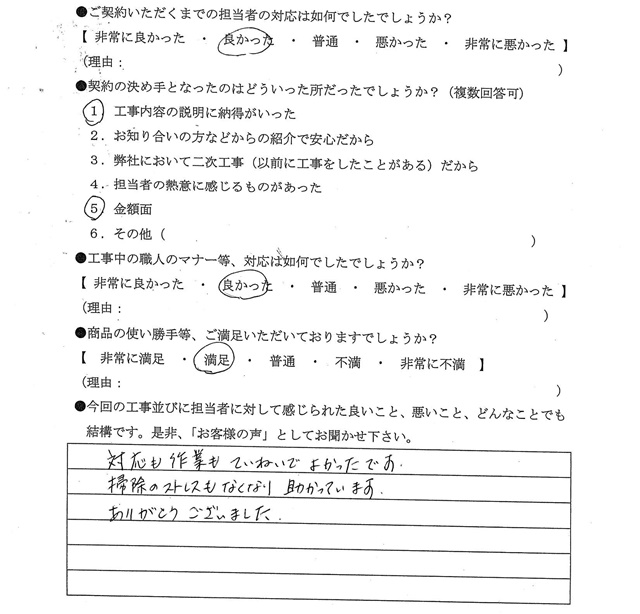 ●ご契約いただくまでの担当者の対応は如何でしたでしょうか？
【 非常に良かった ・ 良かった ・ 普通 ・ 悪かった ・ 非常に悪かった 】
（理由： ）
●契約の決め手となったのはどういった所だったでしょうか？（複数回答可）
1．工事内容の説明に納得がいった
2．お知り合いの方などからの紹介で安心だから
3．弊社において二次工事（以前に工事をしたことがある）だから
4．担当者の熱意に感じるものがあった
5．金額面
6．その他（ ）
●工事中の職人のマナー等、対応は如何でしたでしょうか？
【 非常に良かった ・ 良かった ・ 普通 ・ 悪かった ・ 非常に悪かった 】
（理由： ）
●商品の使い勝手等、ご満足いただいておりますでしょうか？
【 非常に満足 ・ 満足 ・ 普通 ・ 不満 ・ 非常に不満 】
（理由： ）
●今回の工事並びに担当者に対して感じられた良いこと、悪いこと、どんなことでも
結構です。是非、「お客様の声」としてお聞かせ下さい。
対応も作業もていねいでよかったです．
掃除のストレスもなくなり助かっています．
ありがとうございました．